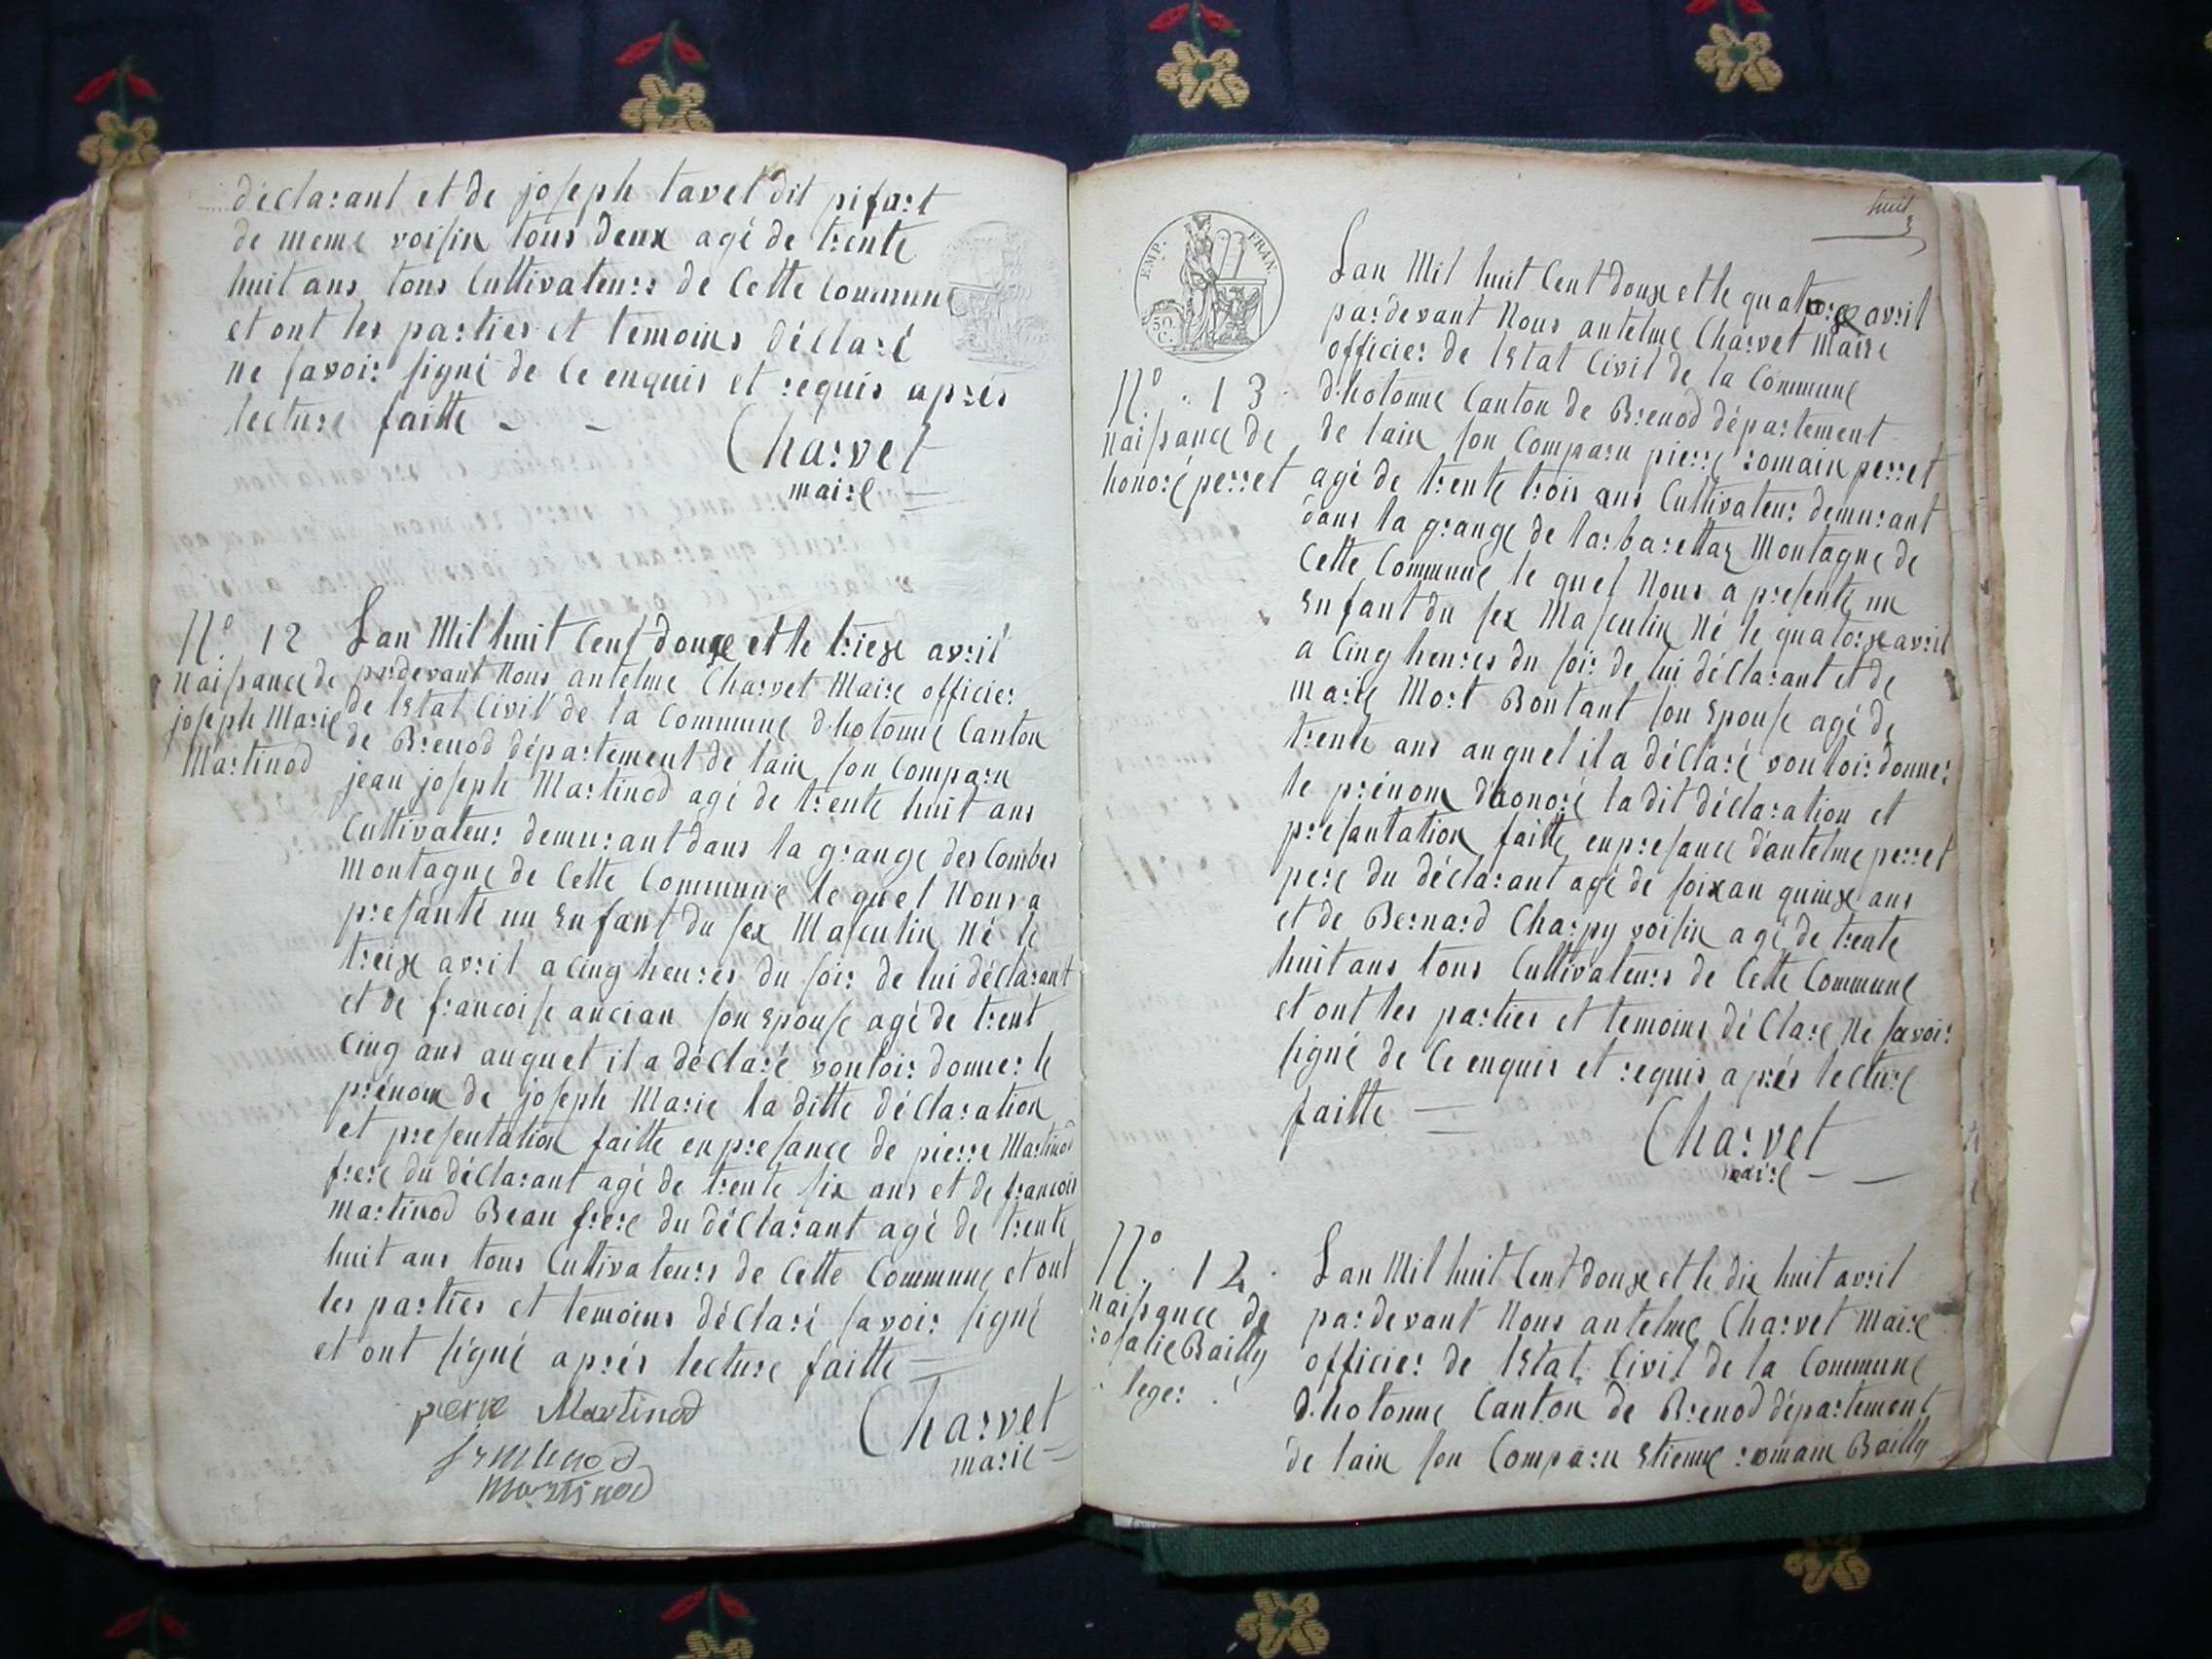 déclarant et de joseph tavel dit pifart
de meme voisin tous deux agé de trente
huit ans tous Cultivateurs de Cette Commune
et ont les parties et temoins déclaré
ne savoir signé de Ce enquis et requis aprés
lecture faitte
Charvet
maire
N.º 12
naissance de
joseph Marie
Martinod
Lan Mil huit Cent douze et le trieze avril
pardevant Nous antelme Charvet Maire officier
de lEtat Civil de la Commune d.hotonne Canton
de Brenod département de lain son Comparu
jean joseph Martinod agé de trente huit ans
Cultivateur demurant dans la grange des Combes
Montagne de Cette Commune le quel Nous a
presanté un Enfant du sex Masculin né le
treize avril a Cinq heures du soir de lui déclarant
et de francoise ancian son Epouse agé de trent
Cinq ans auquel il a déclaré vouloir donner le
prénom de joseph Marie la ditte déclaration
et presentation faitte en presance de pierre Martinod
frere du déclarant agé de trente six ans et de francois
Martinod Beau frere du déclarant agé de trente
huit ans tous Cultivateurs de Cette Commune et ont
les parties et temoins déclaré savoir signé
et ont signé aprés lecture faitte
pierre Martinod
Martinod
Charvet
marie
huit
EMP. FRAN.
50 C.
N.º 13
naissance de
honoré perret
Lan Mil huit Cent douze et le quatorze avril
pardevant Nous antelme Charvet Maire
officier de lEtat Civil de la Commune
d.hotonne Canton de Brenod département
de lain son Comparu pierre romain perret
agé de trente trois ans Cultivateur demurant
dans la grange de larbarettaz Montagne de
Cette Commune le quel Nous a presenté un
Enfant du sex Masculin Né le quatorze avril
a Cinq heures du soir de lui déclarant et de
marie Mort Bontant son Epouse agé de
trente ans auquel il a déclaré vouloir donner
le prénom dhonoré la dit déclaration et
presantation faitte en presance dantelme perret
pere du déclarant agé de soixan quinze ans
et de Bernard Charpy voisin agé de trente
huit ans tous Cultivateurs de Cette Commune
et ont les parties et temoins déClaré Ne savoir
signé de Ce enquis et requis aprés lecture
faitte
Charvet
maire
N.º 12
naissance de
rosalie Bailly
leger
Lan Mil huit Cent douze et le dix huit avril
pardevant Nous antelme Charvet Maire
officier de lEtat Civil de la Commune
d.hotonne Canton de Brenod département
de lain son Comparu Etienne romain Bailly